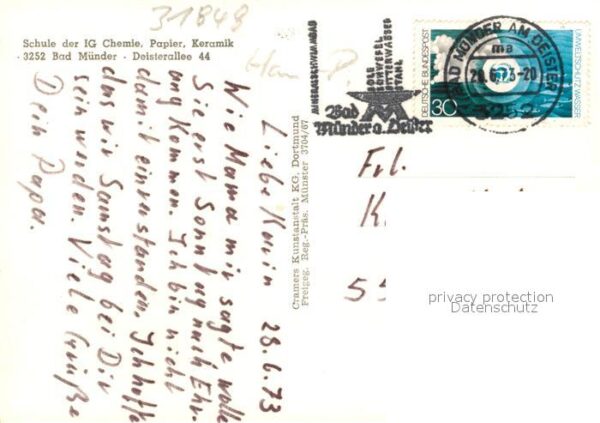 31849
Schule der IG Chemie, Papier, Keramik
3252 Bad Münder - Deisterallee 44
MINERALSCHWIMMBAD
SOLE
SCHWEFEL
BITTERWASSER
STAHL
Bad
Münder a. Deister
BAD MÜNDER AM DEISTER
ma
28.6.73-20
3252
DEUTSCHE BUNDESPOST
30
UMWELTSCHUTZ: WASSER
Liebe Karin 28.6.73
Wie Mama mir sagte wolle
Sie erst Sonntag nach Ehr.
ung kommen. Ich bin nicht
damit einverstanden. Ich hoffe
das wir Samstag bei Dir
sein werden. Viele Grüße
Dein Papa.
Cramers Kunstanstalt KG, Dortmund
Freigeg. Reg.-Präs. Münster 3704/67
Frl.
K.
55
privacy protection
Datenschutz